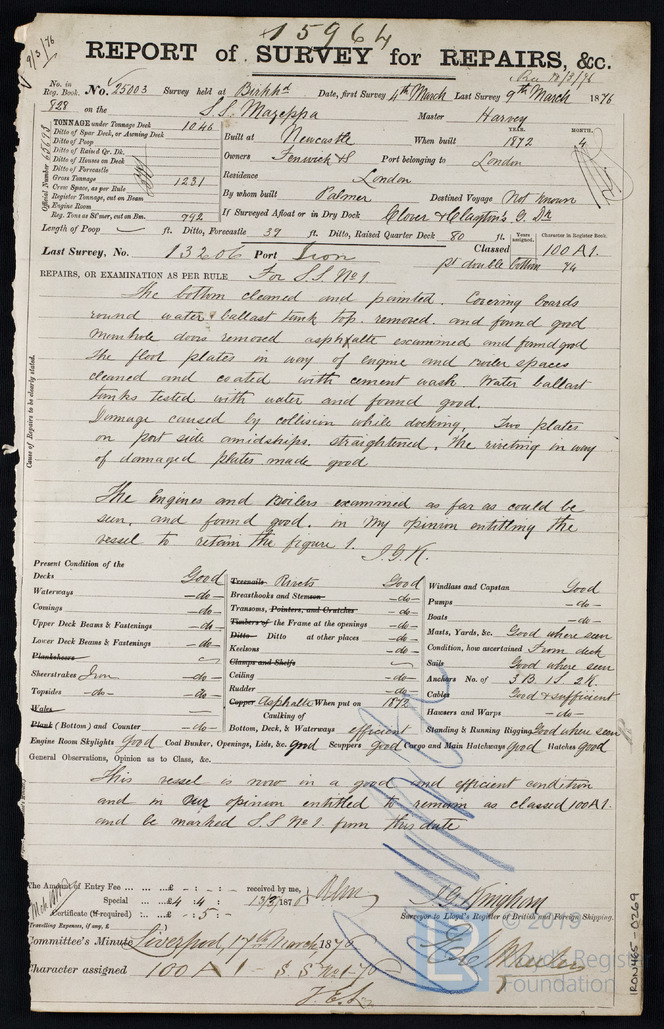 15964
9/3/76
REPORT of SURVEY for REPAIRS, &c.
No. in Reg. Book. No. 25003 Survey held at Birkhd Date, first Survey 4th March Last Survey 9th March 1876
928 on the S.S. Mazeppa Master Harvey
TONNAGE under Tonnage Deck 1046
Ditto of Spar Deck, or Awning Deck
Ditto of Poop
Ditto of Raised Qr. Dk.
Ditto of Houses on Deck
Ditto of Forecastle
Gross Tonnage 1231
Crew Space, as per Rule
Register Tonnage, cut on Beam
Engine Room
Reg. Tons as St'mer, cut on Bm. 792
Official Number
Built at Newcastle When built YEAR. 1872 MONTH. 4
Owners Fenwick & S Port belonging to London
Residence London
By whom built Palmer Destined Voyage Not known
If Surveyed Afloat or in Dry Dock Clover & Clayton's G. Dk
Length of Poop ft. Ditto, Forecastle 39 ft. Ditto, Raised Quarter Deck 80 ft. Years assigned. Character in Register Book.
Last Survey, No. 13206 Port Iron Classed 100 A1.
pt double bottom 74
REPAIRS, OR EXAMINATION AS PER RULE For S.S. No 1.
Cause of Repairs to be clearly stated.
The bottom cleaned and painted. Covering boards
round water ballast tank top removed and found good
Manhole doors removed asphalte examined and found good
The floor plates in way of engine and boiler spaces
cleaned and coated with cement wash. Water ballast
tanks tested with water and found good.
Damage caused by collision while docking, Two plates
on port side amidships straightened, The riveting in way
of damaged plates made good
The Engines and Boilers examined as far as could be
seen, and found good. in my opinion entitling the
vessel to retain the figure 1. J.G.K.
Present Condition of the
Decks Good
Waterways do
Comings do
Upper Deck Beams & Fastenings do
Lower Deck Beams & Fastenings do
Planksheers
Sheerstrakes Iron do
Topsides do do
Wales
Plank (Bottom) and Counter do
Treenails Rivets Good
Breasthooks and Stemson do
Transoms, Pointers, and Crutches do
Timbers of the Frame at the openings do
Ditto Ditto at other places do
Keelsons do
Clamps and Shelfs
Ceiling do
Rudder do
Copper Asphalte When put on 1872
Caulking of
Bottom, Deck, & Waterways efficient
Windlass and Capstan Good
Pumps do
Boats do
Masts, Yards, &c. Good where seen
Condition, how ascertained From deck
Sails Good where seen
Anchors No. of 3 B. 1 S. 2 K.
Cables Good & sufficient
Hawsers and Warps do
Standing & Running Rigging Good where seen
Engine Room Skylights Good Coal Bunker, Openings, Lids, &c. good Scuppers Good Cargo and Main Hatchways good Hatches good
General Observations, Opinion as to Class, &c.
This vessel is now in a good and efficient condition
and in our opinion entitled to remain as classed 100A1.
and be marked S.S No 1. from this date
The Amount of Entry Fee ... £ - : - : - received by me,
Special ... £ 4 : 4 : 13/3/1876
Certificate (if required) : - : 5 : -
Travelling Expenses, if any, £
J G Kinghorn
Surveyor to Lloyd's Register of British and Foreign Shipping.
Committee's Minute Liverpool, 17th March, 1876
Character assigned 100 A 1 - S.S. No 1-76
© 2019
LR
Lloyd's Register
Foundation
IRON465-0269